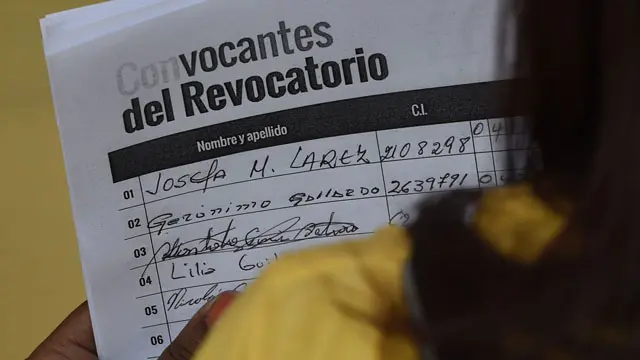 Convocantes
del Revocatorio
Nombre y apellido C.I.
01 JOSEFA M. LAREZ 2108298 04
02 Gerónimo 2639791 0
03
04 Lilia
05 Nicolás
06